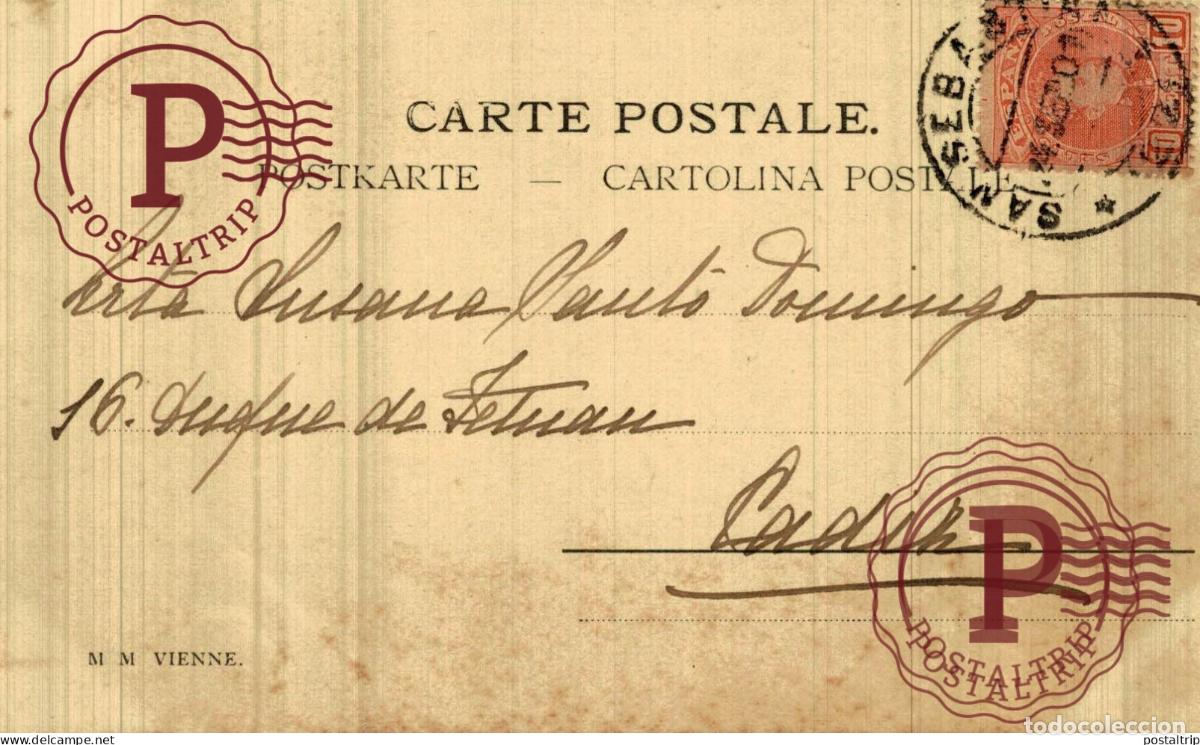 P
POSTALTRIP
CARTE POSTALE.
POSTKARTE — CARTOLINA POSTALE
SAN SEBASTIAN
ESPAÑA
10
10
Srta Susana Santo Domingo
16. Duque de Tetuan
Cadiz
P
POSTALTRIP
POSTALTRIP
M M VIENNE.
todocoleccion
www.delcampe.net
postaltrip